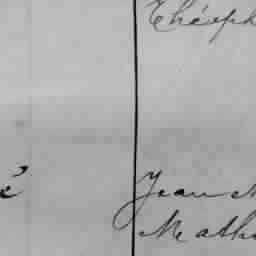 Théoph
é
Jean M
Math